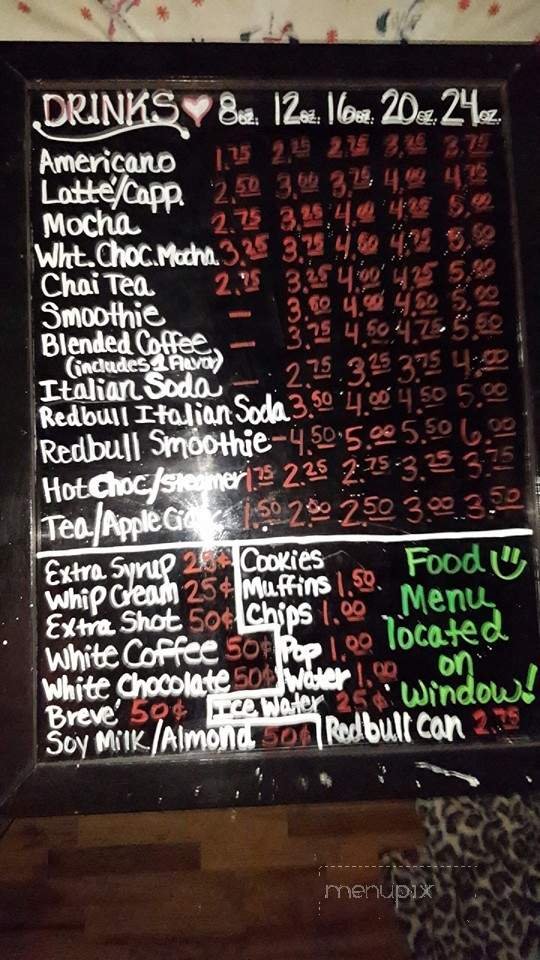 DRINKS 8oz. 12oz. 16oz. 20oz. 24oz.
Americano 1.75 2.25 2.75 3.25 3.75
Latte'/Capp. 2.50 3.00 3.75 4.00 4.75
Mocha 2.75 3.25 4.00 4.25 5.00
Wht. Choc. Mocha 3.25 3.75 4.50 4.75 5.50
Chai Tea 2.75 3.25 4.00 4.25 5.00
Smoothie — 3.50 4.00 4.50 5.00
Blended Coffee — 3.75 4.50 4.75 5.50
(includes 1 Flavor)
Italian Soda — 2.75 3.25 3.75 4.00
Redbull Italian Soda 3.50 4.00 4.50 5.00
Redbull Smoothie - 4.50 5.00 5.50 6.00
Hot Choc/Steamer 1.75 2.25 2.75 3.25 3.75
Tea/Apple Cider 1.50 2.00 2.50 3.00 3.50
Extra Syrup 25¢
Whip Cream 25¢
Extra Shot 50¢
White Coffee 50¢
White Chocolate 50¢
Breve' 50¢
Soy Milk/Almond 50¢
Cookies
Muffins 1.50
Chips 1.00
Pop 1.00
Water 1.00
Ice Water 25¢
Redbull Can 2.75
Food
Menu
located
on
window!
menupix